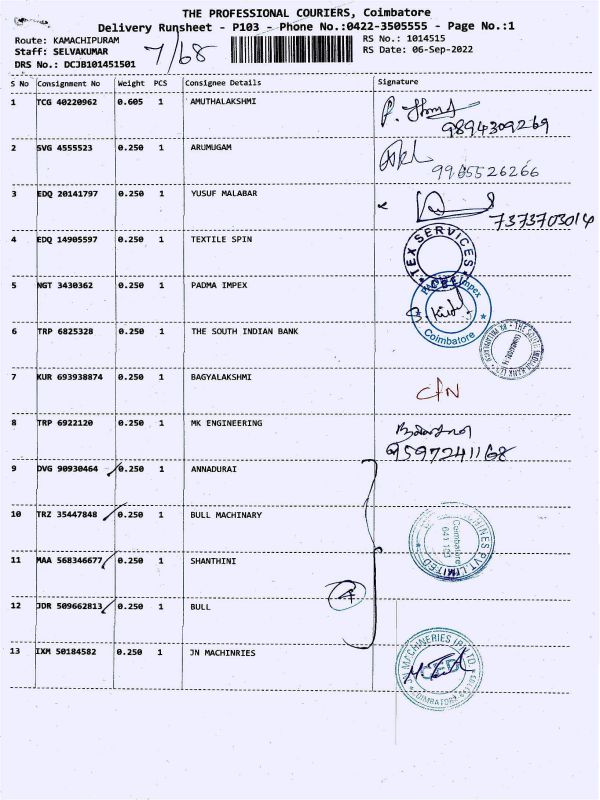 THE PROFESSIONAL COURIERS, Coimbatore
Delivery Runsheet - P103 - Phone No.:0422-3505555 - Page No.:1
Route: KAMACHIPURAM
RS No.: 1014515
Staff: SELVAKUMAR
RS Date: 06-Sep-2022
DRS No.: DCJB101451501
7/68
S No Consignment No Weight PCS Consignee Details Signature
1 TCG 40220962 0.605 1 AMUTHALAKSHMI
9894309269
2 SVG 4555523 0.250 1 ARUMUGAM
9965526266
3 EDQ 20141797 0.250 1 YUSUF MALABAR
7373703014
4 EDQ 14905597 0.250 1 TEXTILE SPIN
TEX SERVICES
5 NGT 3430362 0.250 1 PADMA IMPEX
Impex
Coimbatore
6 TRP 6825328 0.250 1 THE SOUTH INDIAN BANK
7 KUR 693938874 0.250 1 BAGYALAKSHMI
8 TRP 6922120 0.250 1 MK ENGINEERING
9597241168
9 DVG 90930464 0.250 1 ANNADURAI
10 TRZ 35447848 0.250 1 BULL MACHINARY
Coimbatore
PVT LIMITED
11 MAA 568346677 0.250 1 SHANTHINI
12 JDR 509662813 0.250 1 BULL
4
13 IXM 50184582 0.250 1 JN MACHINRIES
JN MACHINERIES (P) LTD